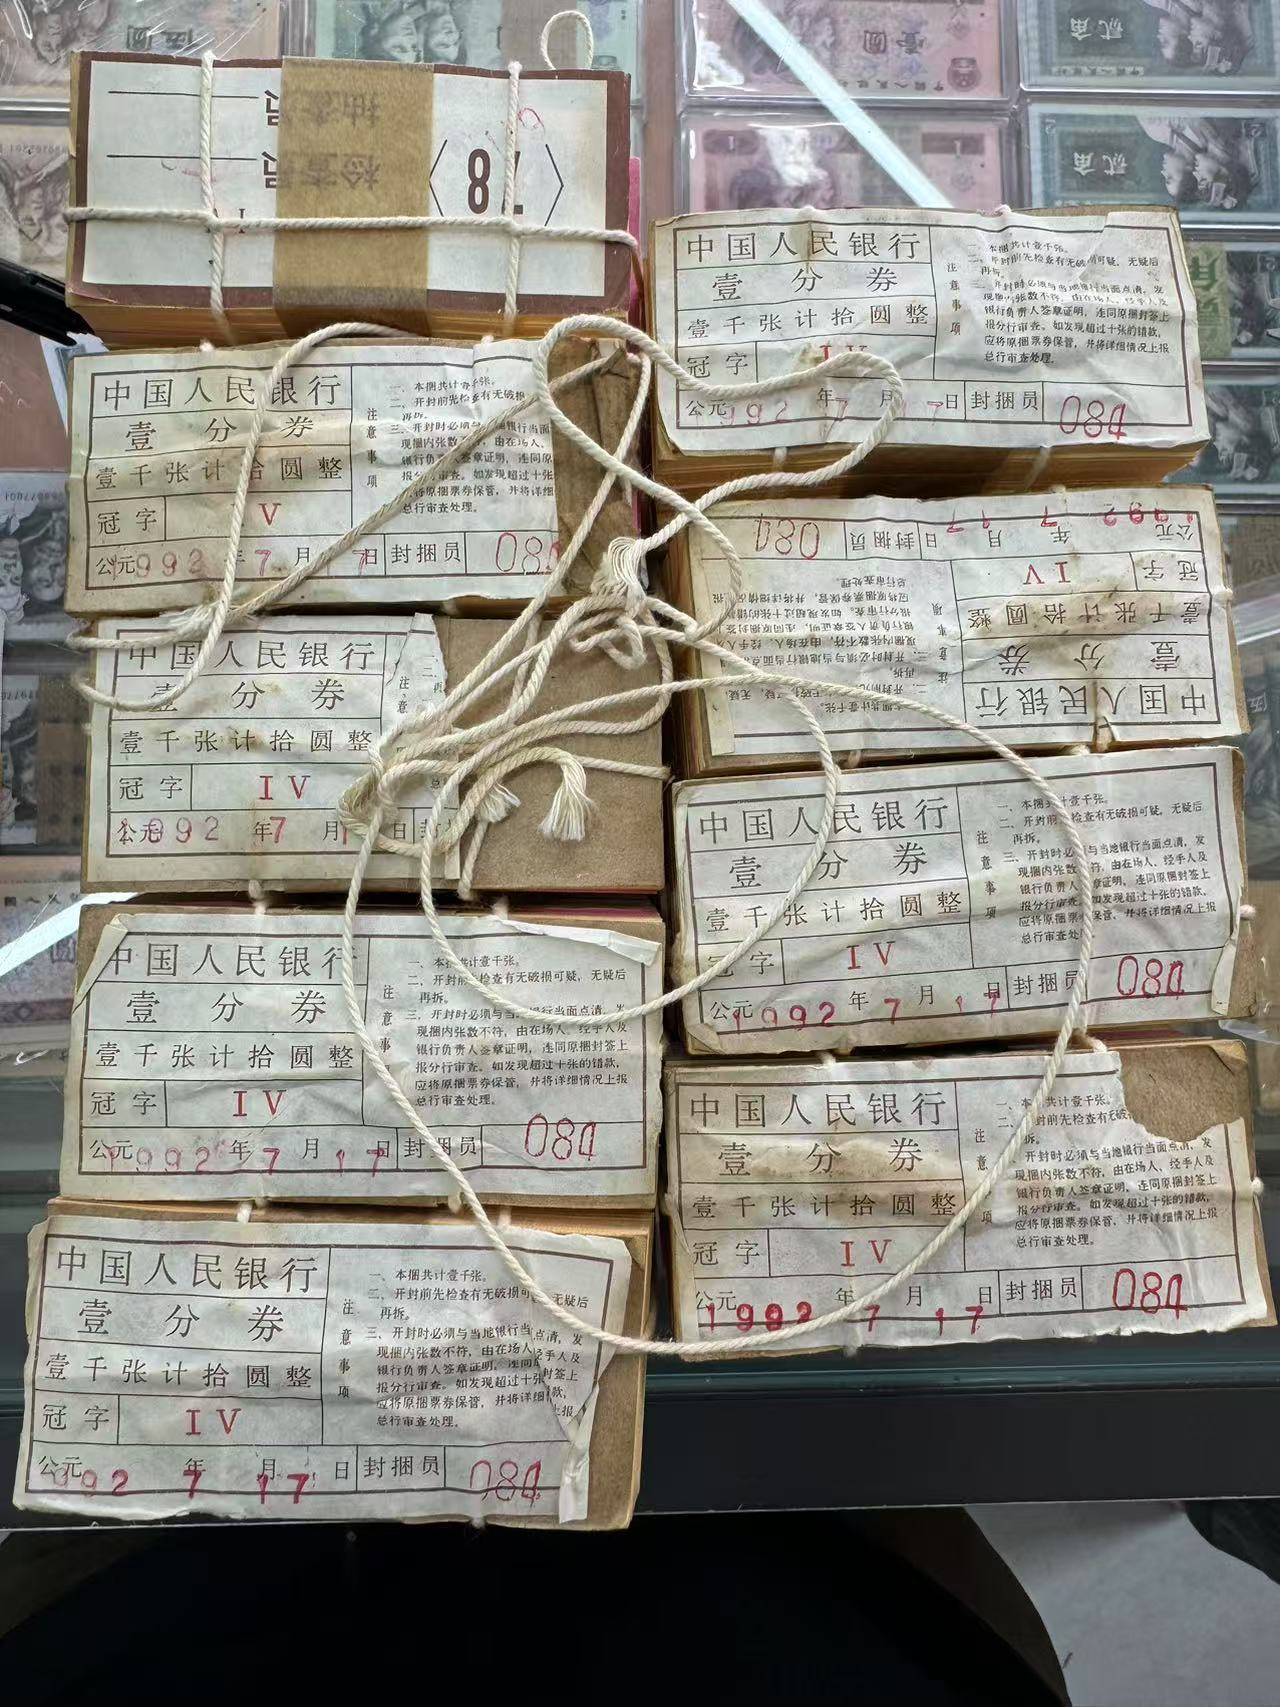 检查员
78
中国人民银行
壹分券
壹千张计拾圆整
冠字 V
公元1992年7月17日 封捆员 084
注意事项
一、本捆共计壹千张。
二、开封前先检查有无破
再拆。
三、开封时必须 地银行当面
现捆内张数不符，由在场人、
银行负责人签章证明，连同原
报分行审查。如发现超过十张
应将原捆票券保管，并将详细
总行审查处理。
中国人民银行
壹分券
壹千张计拾圆整
冠字 IV
公元1992年7月1 日 封
注
意
中国人民银行
壹分券
壹千张计拾圆整
冠字 IV
公元1992年7月17日 封捆员 084
注意事项
一、本捆共计壹千张。
二、开封前先检查有无破损可疑，无疑后
再拆。
三、开封时必须与当地银行当面点清，发
现捆内张数不符，由在场人、经手人及
银行负责人签章证明，连同原捆封签上
报分行审查。如发现超过十张的错款，
应将原捆票券保管，并将详细情况上报
总行审查处理。
中国人民银行
壹分券
壹千张计拾圆整
冠字 IV
公元992年7月17日 封捆员 084
注意事项
一、本捆共计壹千张。
二、开封前先检查有无破损可疑，无疑后
再拆。
三、开封时必须与当地银行当面点清，发
现捆内张数不符，由在场人、经手人及
银行负责人签章证明，连同 封签上
报分行审查。如发现超过十张 款，
应将原捆票券保管，并将详细 上报
总行审查处理。
中国人民银行
壹分券
壹千张计拾圆整
冠字 IV
公元992年7月17日 封捆员 084
注意事项
一、本捆共计壹千张。
二、开封前先检查有无破损可疑，无疑后
再拆。
三、开封时必须与当地银行当面点清，发
现捆内张数不符，由在场人、经手人及
银行负责人签章证明，连同原捆封签上
报分行审查。如发现超过十张的错款，
应将原捆票券保管，并将详细情况上报
总行审查处理。
中国人民银行
壹分券
壹千张计拾圆整
冠字 IV
公元1992年7月17日 封捆员 080
注意事项
一、本捆共计壹千张。
再拆。
三、开封时必须与当地银行当面点
现捆内张数不符，由在场人、经手人
银行负责人签章证明，连同原捆封签
报分行审查。如发现超过十张的错
应将原捆票券保管，并将详细情况 报
总行审查处理。
中国人民银行
壹分券
壹千张计拾圆整
冠字 IV
公元1992年7月17日 封捆员 084
注意事项
一、本捆共计壹千张。
二、开封前先检查有无破损可疑，无疑后
再拆。
三、开封时必须与当地银行当面点清，发
现捆内张数不符，由在场人、经手人及
银行负责人签章证明，连同原捆封签上
报分行审查。如发现超过十张的错款，
应将原捆票券保管，并将详细情况上报
总行审查处理。
中国人民银行
壹分券
壹千张计拾圆整
冠字 IV
公元1992年7月17日 封捆员 084
注意事项
一、本捆共计壹千张。
二、开封前先检查有无破
再拆。
三、开封时必须与当地银行当面点清，发
现捆内张数不符，由在场人、经手人及
银行负责人签章证明，连同原捆封签上
报分行审查。如发现超过十张的错款，
应将原捆票券保管，并将详细情况上报
总行审查处理。
壹圆
贰角
贰角